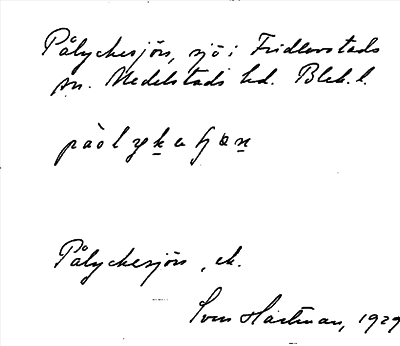 Pålyckesjön, sjö i Fridlevstads
sn. Medelstads hd. Blek. l.
Pålyckesjön, ek.
Sven Hartman, 1929